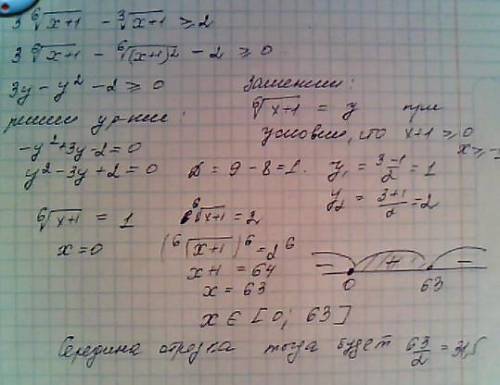 3 ⁶√x+1 - ³√x+1 ≥ 2
3 ⁶√x+1 - ⁶√(x+1)² - 2 ≥ 0
3y - y² - 2 ≥ 0 Заменим:
⁶√x+1 = y при
решим ур-ние: условии, что x+1 ≥ 0
x ≥ -1
-y²+3y-2=0
y²-3y+2=0 D = 9-8=1. y₁ = 3-1/2 = 1
y₂ = 3+1/2 = 2
⁶√x+1 = 1 ⁶√x+1 = 2
x=0 (⁶√x+1)⁶ = 2⁶
x+1 = 64
x = 63
- + -
0 63
x ∈ [0; 63]
Середина отрезка тогда будет 63/2 = 31,5